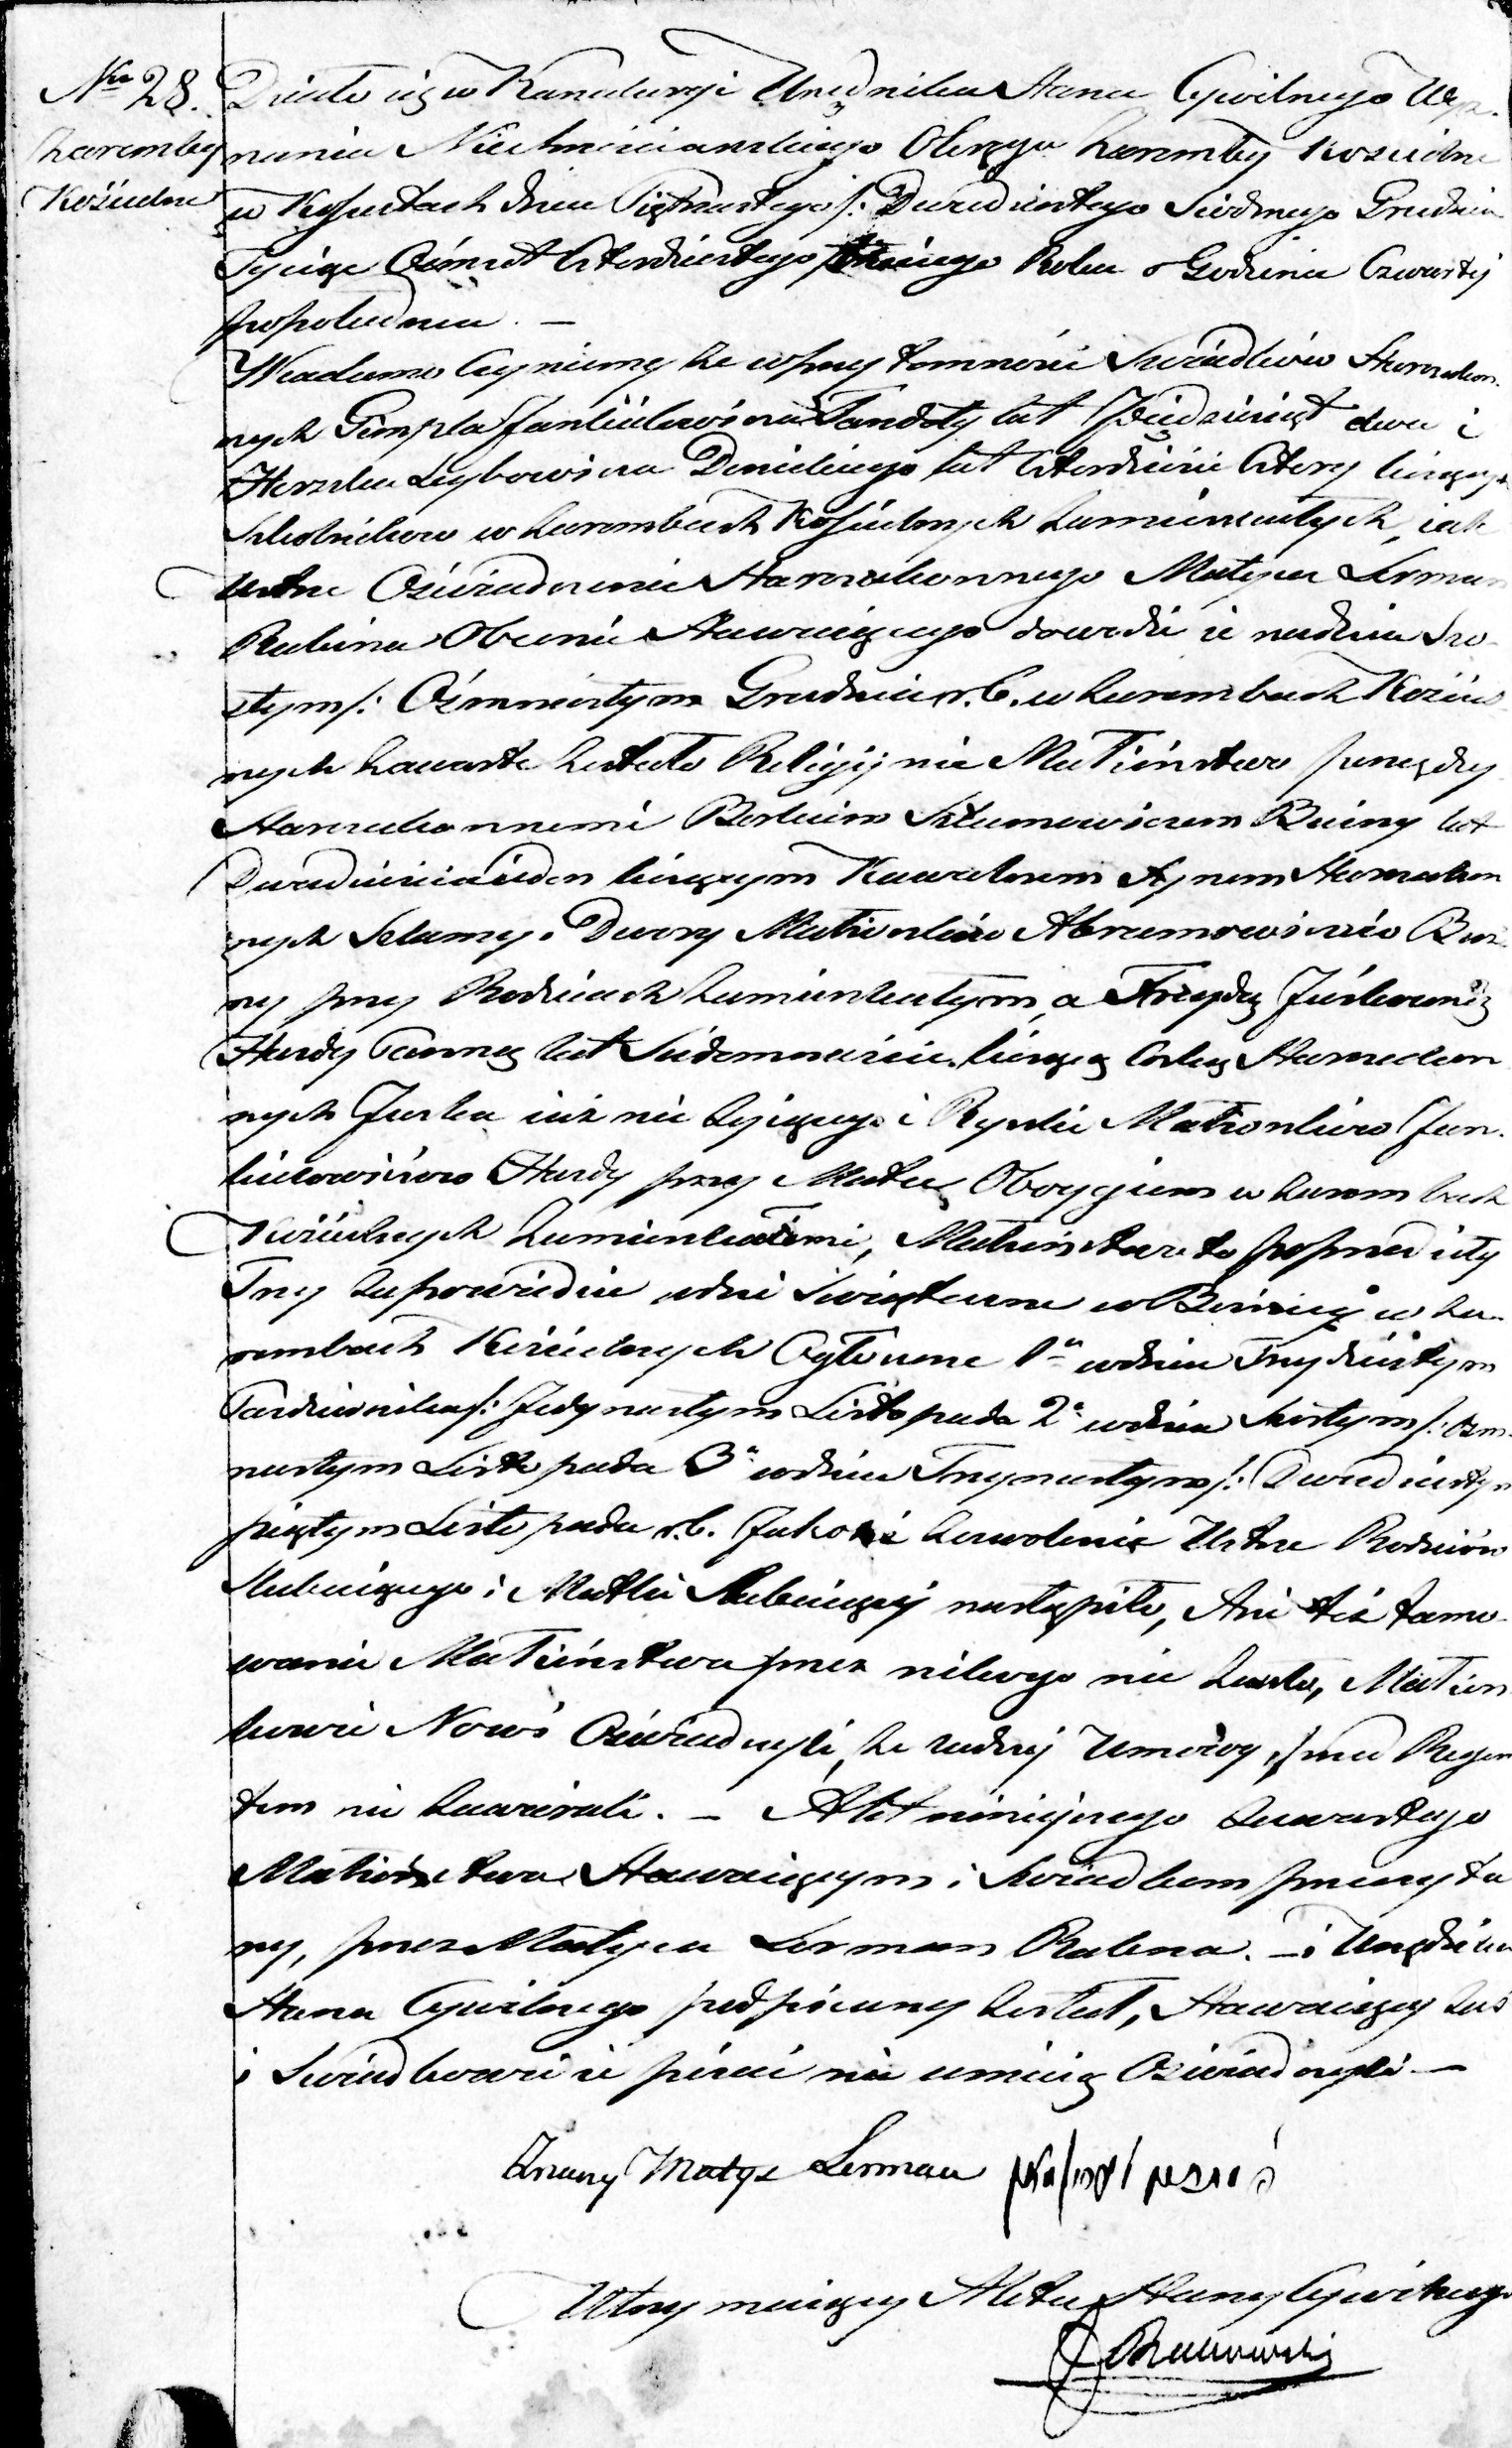 Nro 28.
Zaremby
Kościelne
Działo się w Kancelaryi Urzędnika Stanu Cywilnego Wyz-
nania Niechrześciańskiego Okręgu Zaremby Kościelne
w Kossutach dnia Piętnastego /: Dwudziestego Siódmego Grudnia
Tysiąc Ośmset Czterdziestego Roku o Godzinie Czwartej
popołudniu. —
Wiadomo Czyniemy że w przytomności Świadków Starozakon-
nych Gimpla Jankielowicza Tandety lat Pięćdziesiąt dwa i
Herszka Leybowicza lat Czterdzieści Cztery liczących
Szkolników w Zarembach Kościelnych Zamieszkałych, iak
ustne Oświadczenie Starozakonnego Matysa Lerman
Rabina Obecnie Stawaiącego dowodzi iż na dniu Szo-
stym /: Ośmnastym Grudnia r. b. w Zarembach Kościel-
nych Zawarte Zostało Religijnie Małżeństwo pomiędzy
Starozakonnemi Berkiem Szlamowiczem lat
Dwadzieścia ieden liczącym Kawalerem Synem Starozakon
nych Szlamy i Dwory Małżonków Abramowiczów
przy Rodzicach Zamieszkałym, a Frejdą Juskowną
Hurdy Panną lat Siedemnaście liczącą Córką Starozakon
nych Juska iuż nie żyiącego i Rywki Małżonków Jan-
kielowiczów Hurdy przy Matce Oboygiem w Zarembach
Kościelnych Zamieszkałemi, Małżeństwo to poprzedziły
Trzy Zapowiedzie w dni Świąteczne w Bóżnicy w Za-
rembach Kościelnych Ogłoszone 1a w dniu Trzydziestym
Października /: Jedynastym Listopada 2a w dniu Szóstym /: Ośm-
nastym Listopada 3a w dniu Trzynastym /: Dwudziestym
piątym Listopada r. b. Jakoż i Zezwolenie Ustne Rodziców
Słubuiącego i Matki Słubuiącej nastąpiło, Ani też tamo-
wanie Małżeństwa przez nikogo nie Zaszło, Małżon
kowie Nowi Oświadczyli, że żadnej Umowy przed Regen
tem nie Zawierali. — Akt niniejszego Zawartego
Małżeństwa Stawaiącym i Świadkom przeczyta
ny, przez Matysa Lerman Rabina. — i Urzędnika
Stanu Cywilnego podpisany Został, Stawaiący Zaś
i Świadkowie iż pisać nie umieią Oświadczyli —
Matys Lerman
Utrzymuiący Akta Stanu Cywilnego